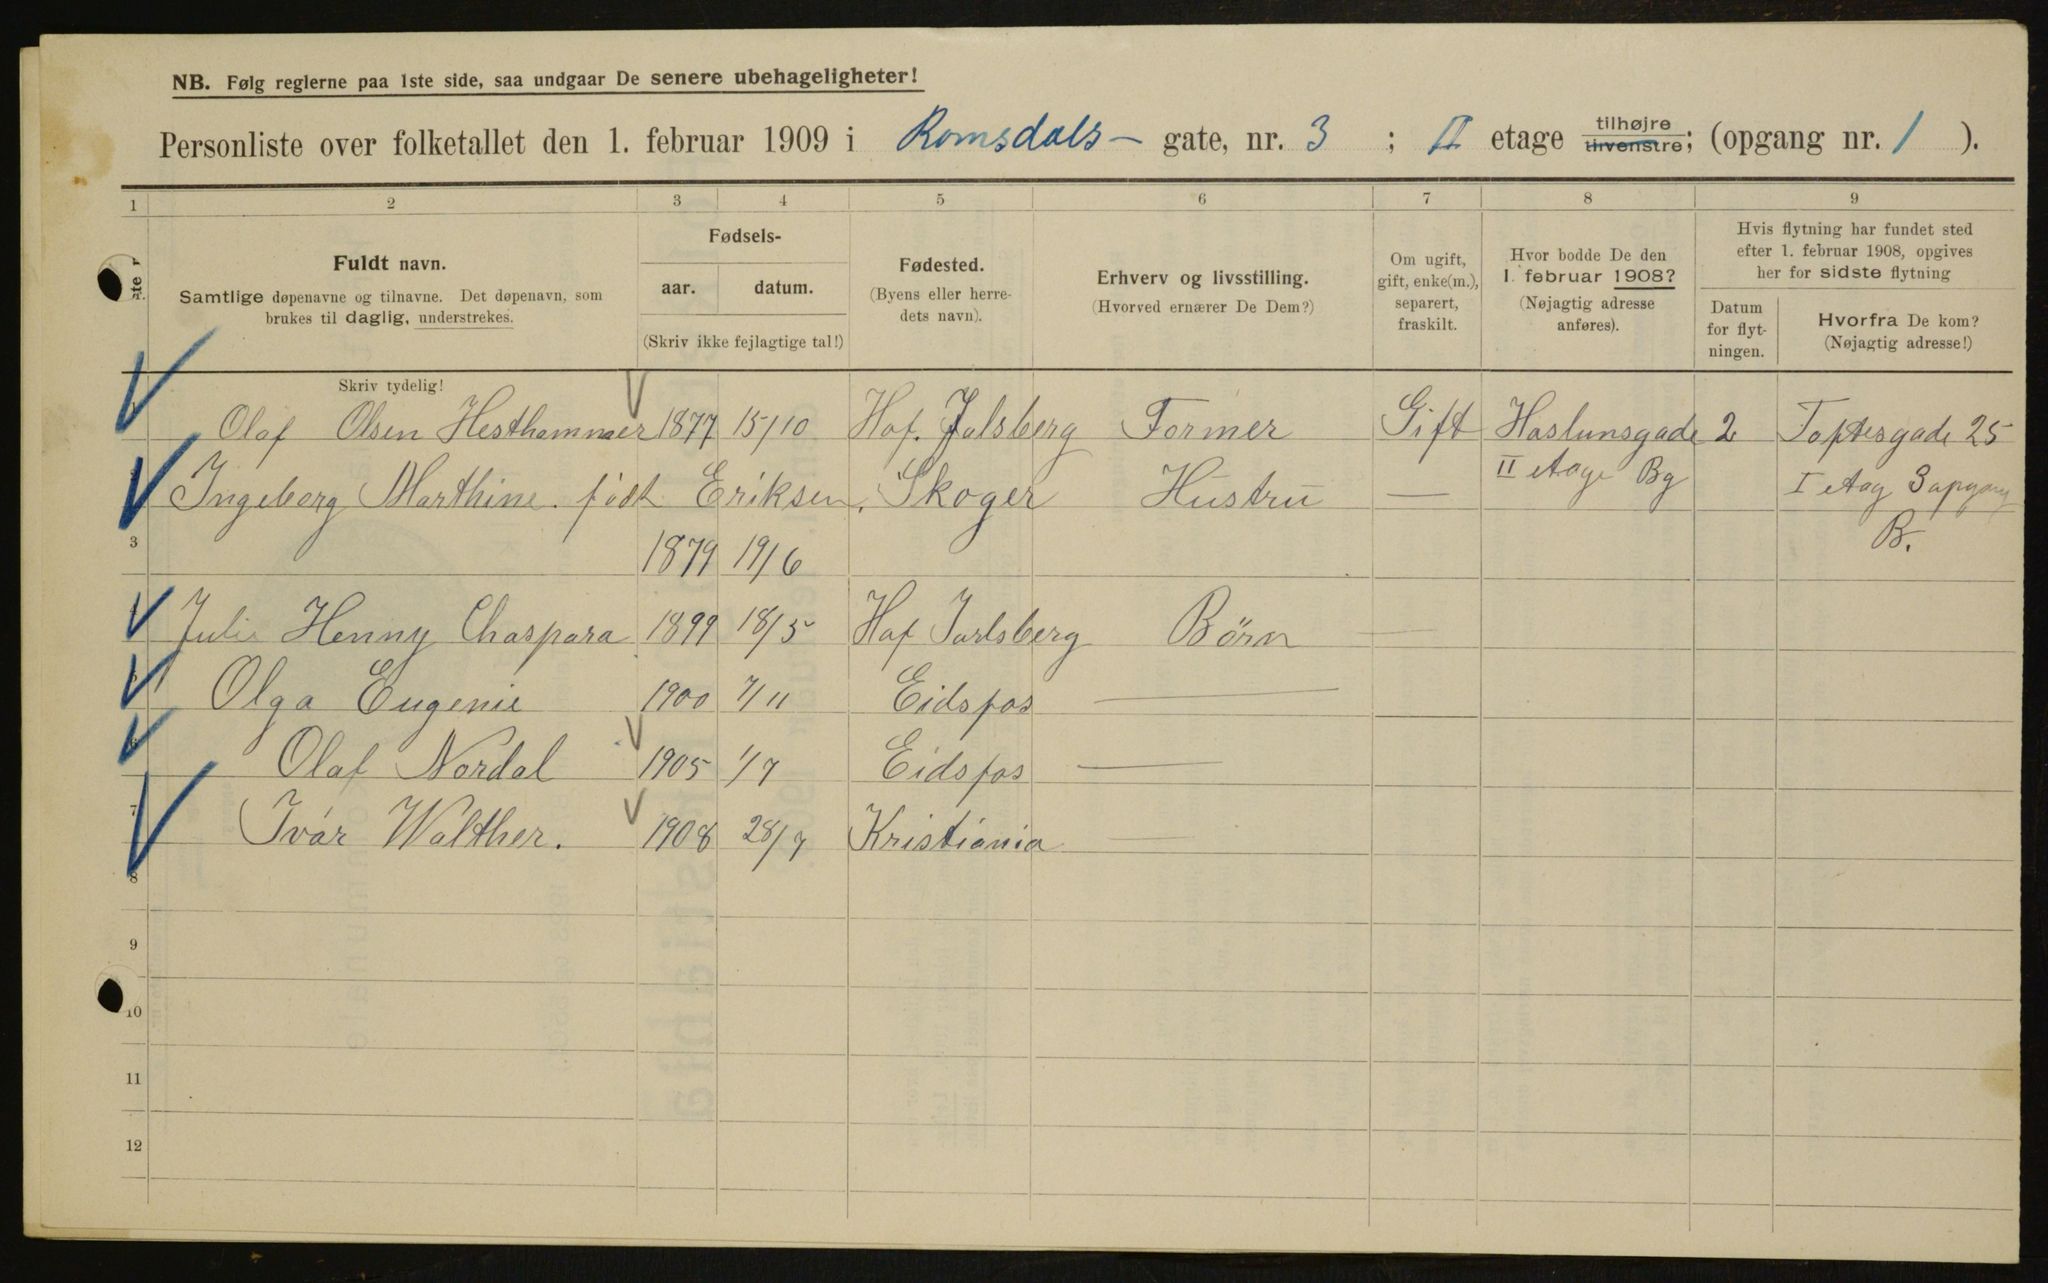 NB. Følg reglerne paa 1ste side, saa undgaar De senere ubehageligheter!
Personliste over folketallet den 1. februar 1909 i Romsdals- gate, nr. 3 ; II etage tilhøjre tilvenstre; (opgang nr. 1 ).
1 2 3 4 5 6 7 8 9
Fuldt navn.
Samtlige døpenavne og tilnavne. Det døpenavn, som
brukes til daglig, understrekes.
Fødsels-
aar. datum.
(Skriv ikke fejlagtige tal!)
Fødested.
(Byens eller herre-
dets navn).
Erhverv og livsstilling.
(Hvorved ernærer De Dem?)
Om ugift,
gift, enke(m.),
separert,
fraskilt.
Hvor bodde De den
1. februar 1908?
(Nøjagtig adresse
anføres).
Hvis flytning har fundet sted
efter 1. februar 1908, opgives
her for sidste flytning
Datum
for flyt-
ningen.
Hvorfra De kom?
(Nøjagtig adresse!)
Skriv tydelig!
Olaf Olsen Hesthammer 1877 15/10 Hof. Jalsberg Former Gift Haslumsgade 2 Toftesgade 25
II etage Bg I etag 3 apgang
Ingeborg Marthine. født Eriksen. Skoger Hustru —
B.
3 1879 19/6
Julie Henny Chaspara 1899 18/5 Hof Jarlsberg Børn —
Olga Eugenie 1900 7/11 Eidsfos —
Olaf Nordal 1905 1/7 Eidsfos —
7 Ivár Walther. 1908 28/7 Kristiania —
8
9
10
11
12